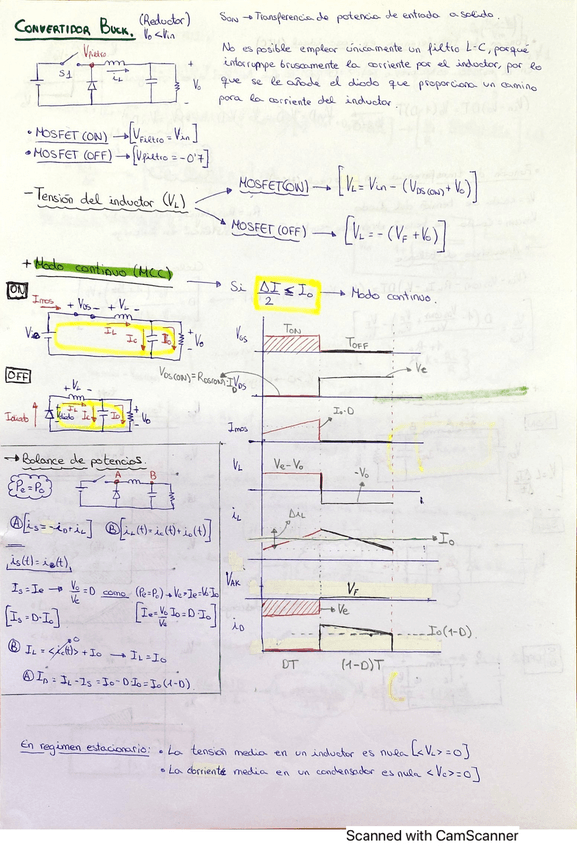 CONVERTIDOR BUCK. (Reductor)
Vo < Vin
SON → Transferencia de potencia de entrada a salida.
No es posible emplear únicamente un filtro L-C, porque
interrumpe bruscamente la corriente por el inductor, por lo
que se le añade el diodo que proporciona un camino
para la corriente del inductor
Vfiltro
S1
iL
+
Vo
-
• MOSFET (ON) → [VFiltro = Vin]
• MOSFET (OFF) → [Vfiltro = -0'7]
- Tensión del inductor (VL)
MOSFET(ON) → [VL = Vin - (VDS(ON) + Vo)]
MOSFET (OFF) → [VL = - (VF + Vo)]
+ Modo continuo (MCC) → Si ΔI/2 ≤ Io → Modo continuo.
ON
Imos + VDS - + VL -
IL Ic Io + Vo -
OFF
+ VL -
Idiodo IL Ic Io + Vo -
TON TOFF
VGS
VDS(ON) = RDS(ON)·ID
VDS Ve
Imos Io·D
VL Ve-Vo -Vo
iL ΔiL Io
VAK VF
-Ve
iD Io(1-D)
DT (1-D)T
→ Balance de potencias.
Pe = Po
A B
Ⓐ [is = -iD + iL] Ⓑ [iL(t) = ic(t) + io(t)]
is(t) = ie(t)
Is = Ie → Vo/Ve = D como (Pe = Po) → Ve·Ie = Vo·Io
[Is = D·Io] [Ie = Vo/Ve Io = D·Io]
Ⓑ IL = <ic(t)> + Io → IL = Io
0
Ⓐ ID = IL - Is = Io - D·Io = Io(1-D)
En regimen estacionario: • La tensión media en un inductor es nula [<VL> = 0]
• La corriente media en un condensador es nula <Vc> = 0]
Scanned with CamScanner